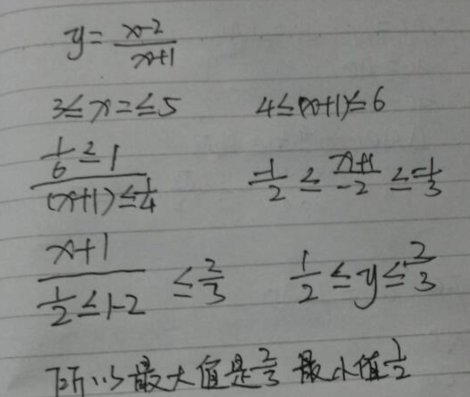 y = \frac{x-2}{x+1}
3 ≤ x = ≤ 5    4 ≤ (x+1) ≤ 6
\frac{\frac{1}{6} ≤ 1}{(x+1) ≤ \frac{1}{4}}    \frac{-1}{2} ≤ \frac{x+1}{-2} ≤ \frac{-1}{3}
\frac{x+1}{\frac{1}{2} ≤ 1-2} ≤ \frac{2}{3}    \frac{1}{2} ≤ y ≤ \frac{2}{3}
所以最大值是\frac{2}{3} 最小值\frac{1}{2}